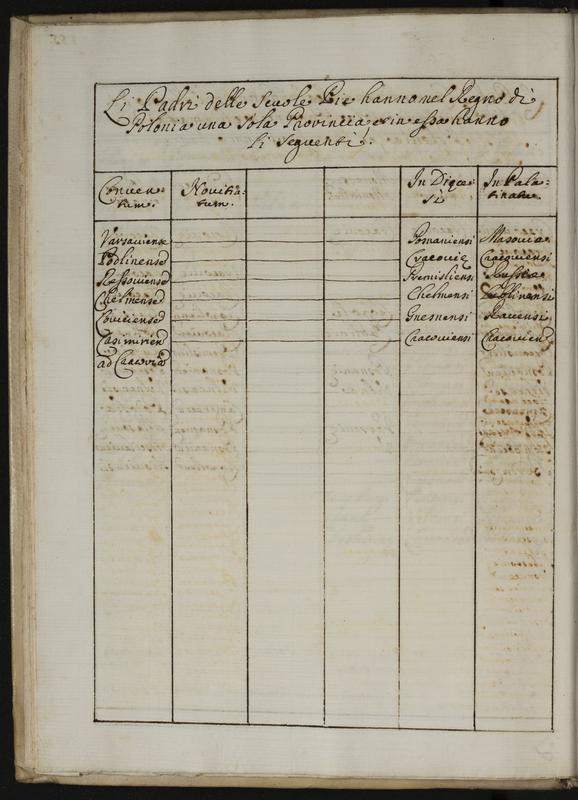 Li Padri delle Scuole Pie hanno nel Regno di
Polonia una sola Provincia, et in essa hanno
li seguenti.
Conuen-
tum.
Nouitia-
tum.
In Dioce-
si
In Pala-
tinatu.
Varsauiense Posnaniensi Masouia
Podlinense Cracouie Cracouiensi
Ressouiense Premisliensi Russia
Chelmense Chelmensi Lublinensi
Louiciense Gnesnensi Rauensi
Casimirien Cracouiensi Cracouien
ad Cracouia